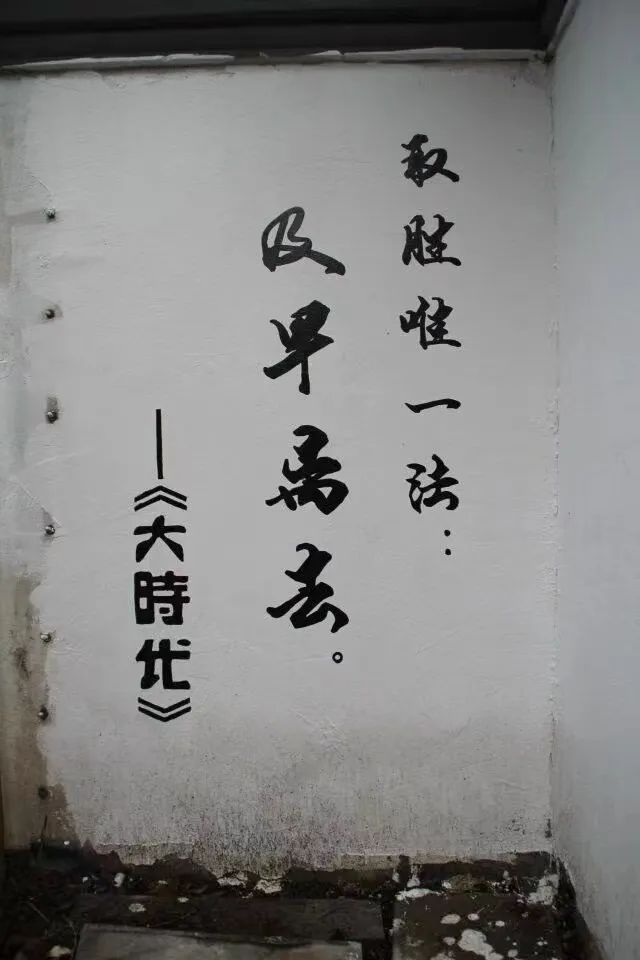 取勝唯一法：
及早离去。
——《大時代》